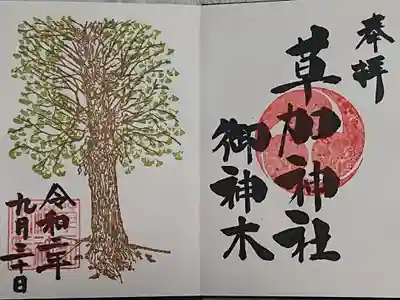 奉拝
草加神社
御神木
令和二年
九月三十日